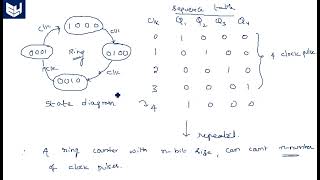 sequence table
Clk Q1 Q2 Q3 Q4
0 1 0 0 0
1 0 1 0 0
2 0 0 1 0
3 0 0 0 1
4 1 0 0 0
4 clock pulse
1000
Clk
Clk
0001
Ring
0100
Clk
Clk
0010
State diagram
repeated.
∴ A ring counter with n-bit size, can count n-number
of clock pulses.